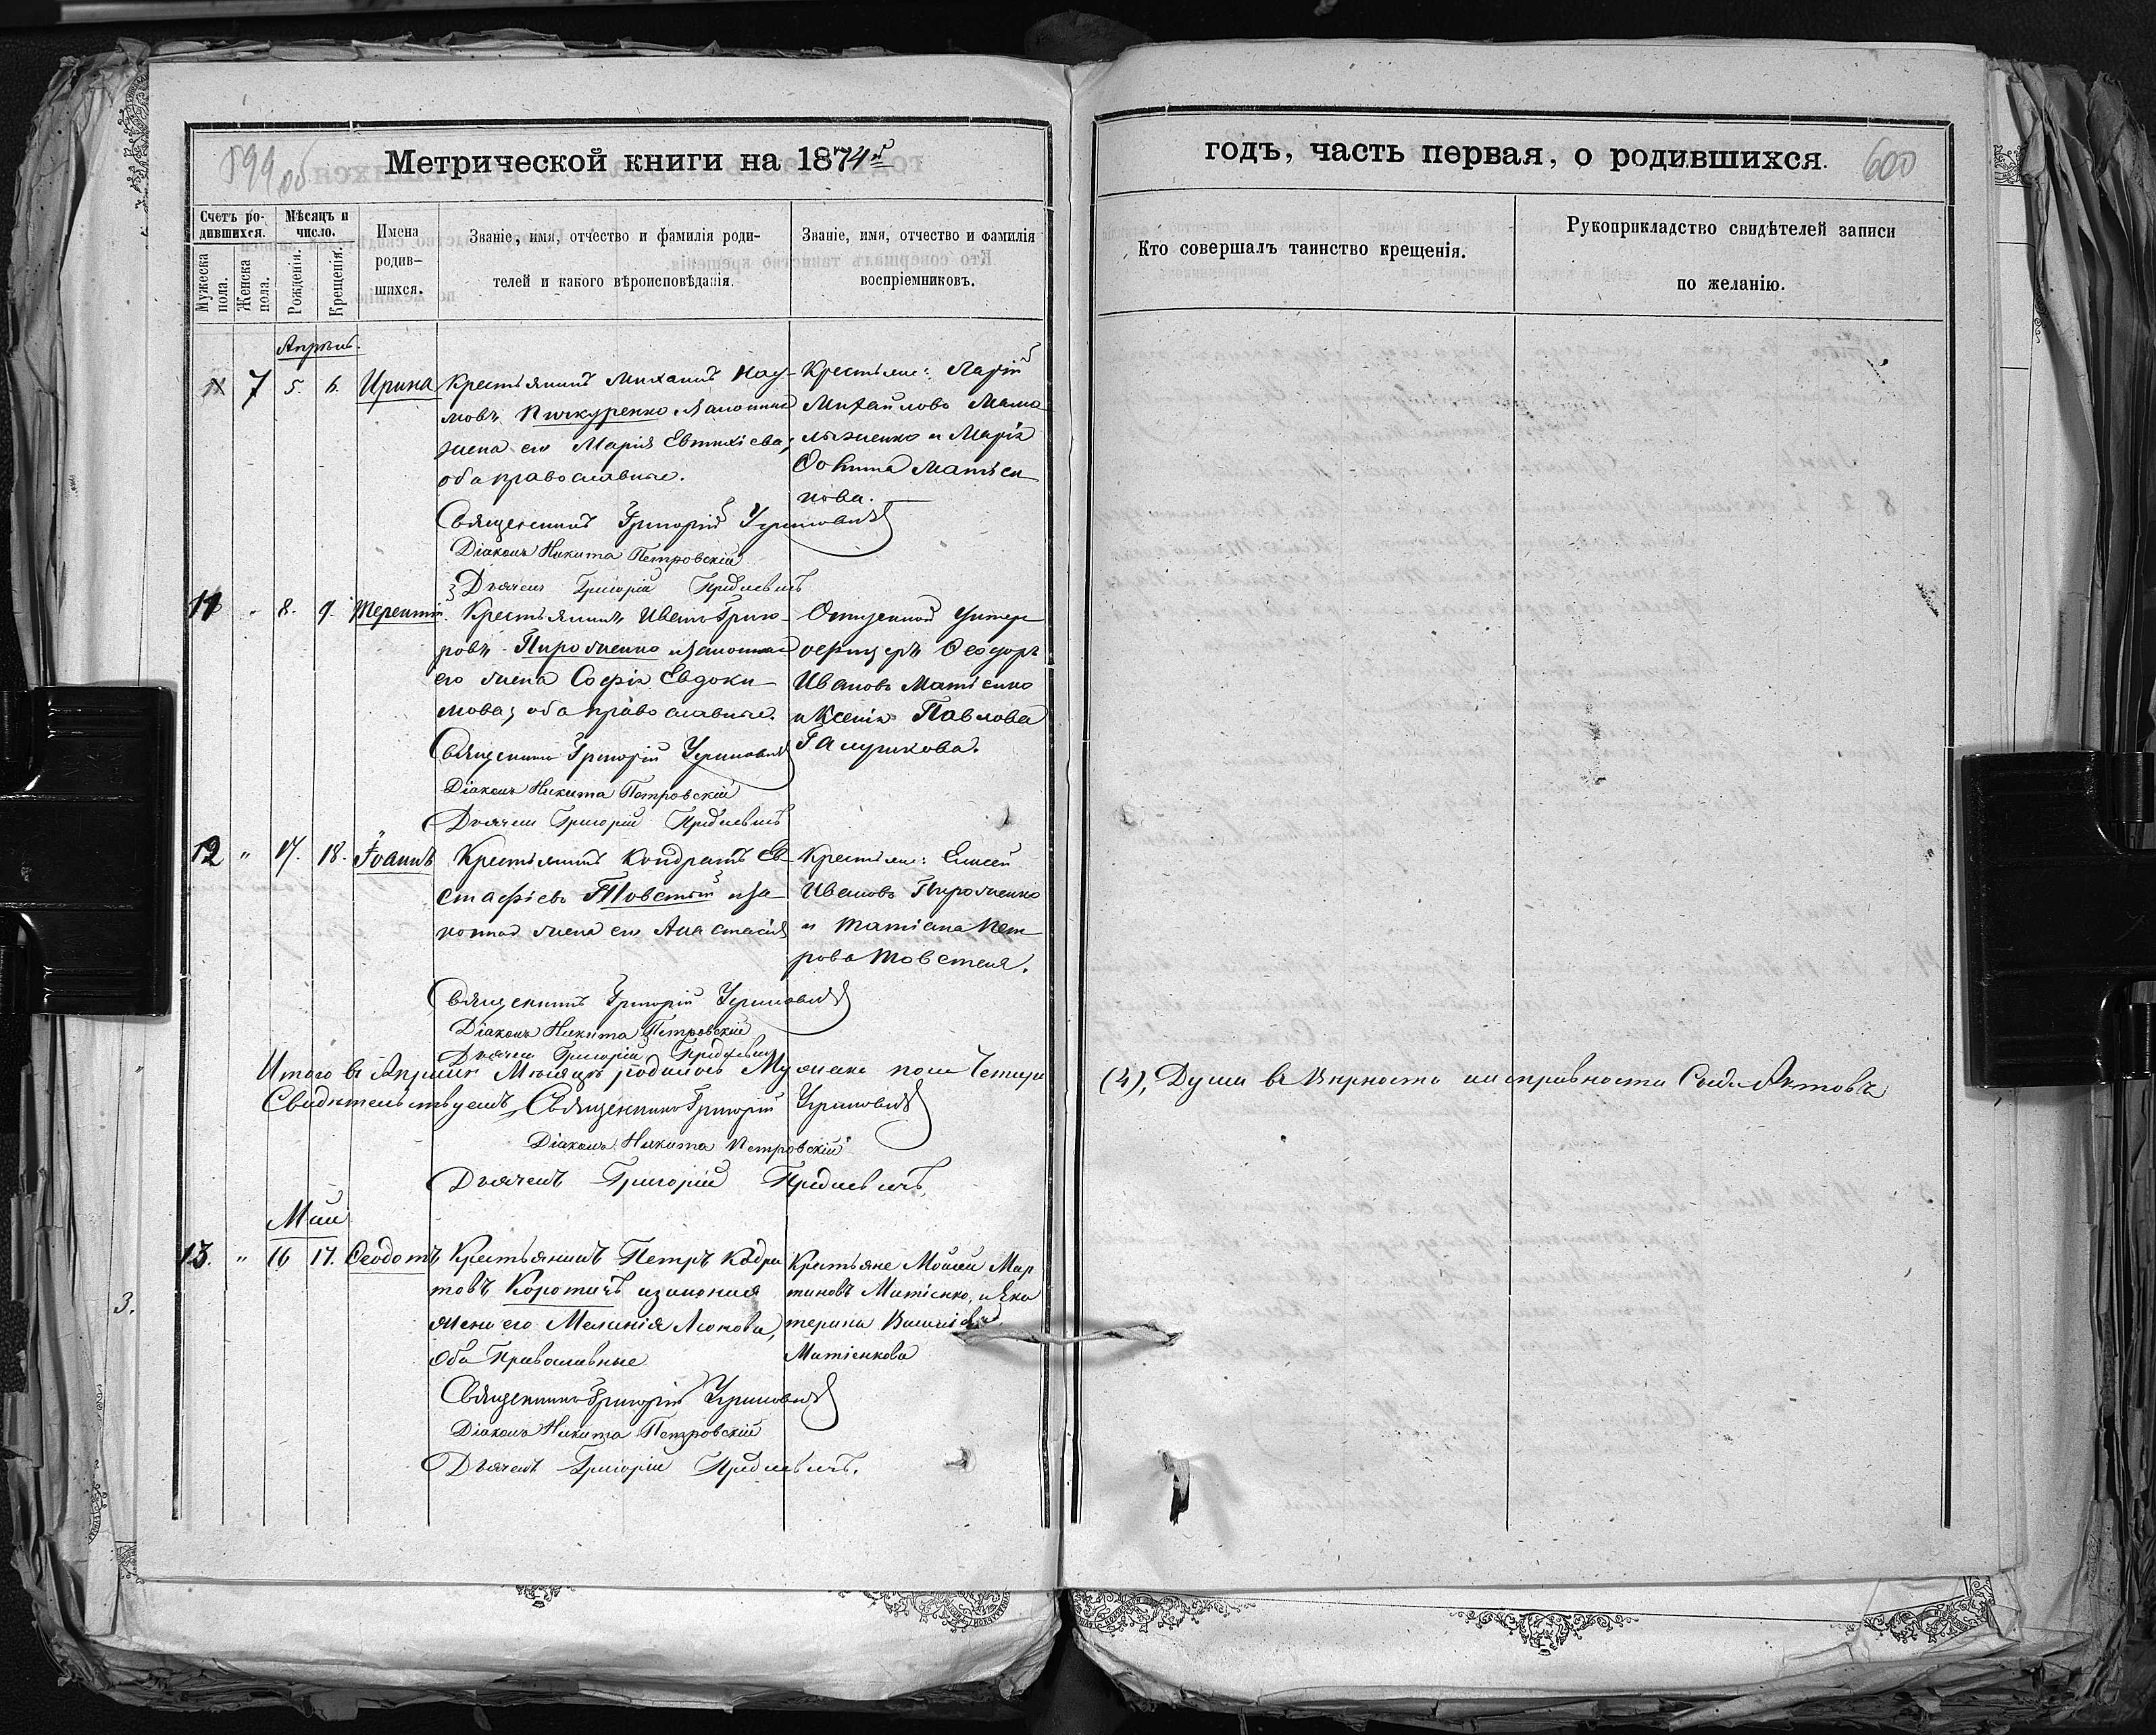 599 об
Метрической книги на 1874й
годъ, часть первая, о родившихся.
600
Счетъ ро-
дившихся.
Мѣсяцъ и
число.
Мужеска
пола.
Женска
пола.
Рожденія.
Крещенія.
Имена
родив-
шихся.
Званіе, имя, отчество и фамилія роди-
телей и какого вѣроисповѣданія.
Званіе, имя, отчество и фамилія
воспріемниковъ.
Кто совершалъ таинство крещенія.
Рукоприкладство свидѣтелей записи
по желанію.
Апрѣль.
7 5. 6. Ирина
Крестьянинъ Михаилъ Нау-
мовъ Пичкуренко
жена его Марія Евтихіева,
оба православные.
Крестьяне:
Михайловъ
и Марія
нова.
Священникъ Григорій
Діаконъ Никита Петровскій
Дьячекъ Григорій
11 " 8. 9. Терентій.
Крестьянинъ Иванъ Григо-
ровъ Пироженко и законная
его жена Софія Евдоки-
мова, оба православные.
Отпускной Унтер
офицеръ Феодоръ
Ивановъ Матіенко
и Ксенія Павлова
Галушкова.
Священникъ Григорій
Діаконъ Никита Петровскій
Дьячекъ Григорій
12 " 17. 18. Іоаннъ
Крестьянинъ Кондратъ Ев-
стафіевъ Товстый и за-
конная жена его Анастасія
Крестьяне: Елисей
Ивановъ Пироженко
и Татіана Пет-
рова Товстая.
Священникъ Григорій
Діаконъ Никита Петровскій
Дьячекъ Григорій
Итого въ Апрѣлѣ Мѣсяцѣ родилось Мужеска пола Четыре
(4), Души въ вѣрности и исправности Сихъ Актовъ
Свидѣтельствуемъ, Священникъ Григорій
Діаконъ Никита Петровскій
Дьячекъ Григорій
Май
13. " 16 17. Феодотъ
Крестьянинъ Петръ Кодра
товъ Коротичъ и законная
жена его Меланія Леонова,
Оба Православные
Крестьяне Моисей Мар
тиновъ Матіенко, и Ека
терина
Матіенкова
Священникъ Григорій
Діаконъ Никита Петровскій
Дьячекъ Григорій
3.